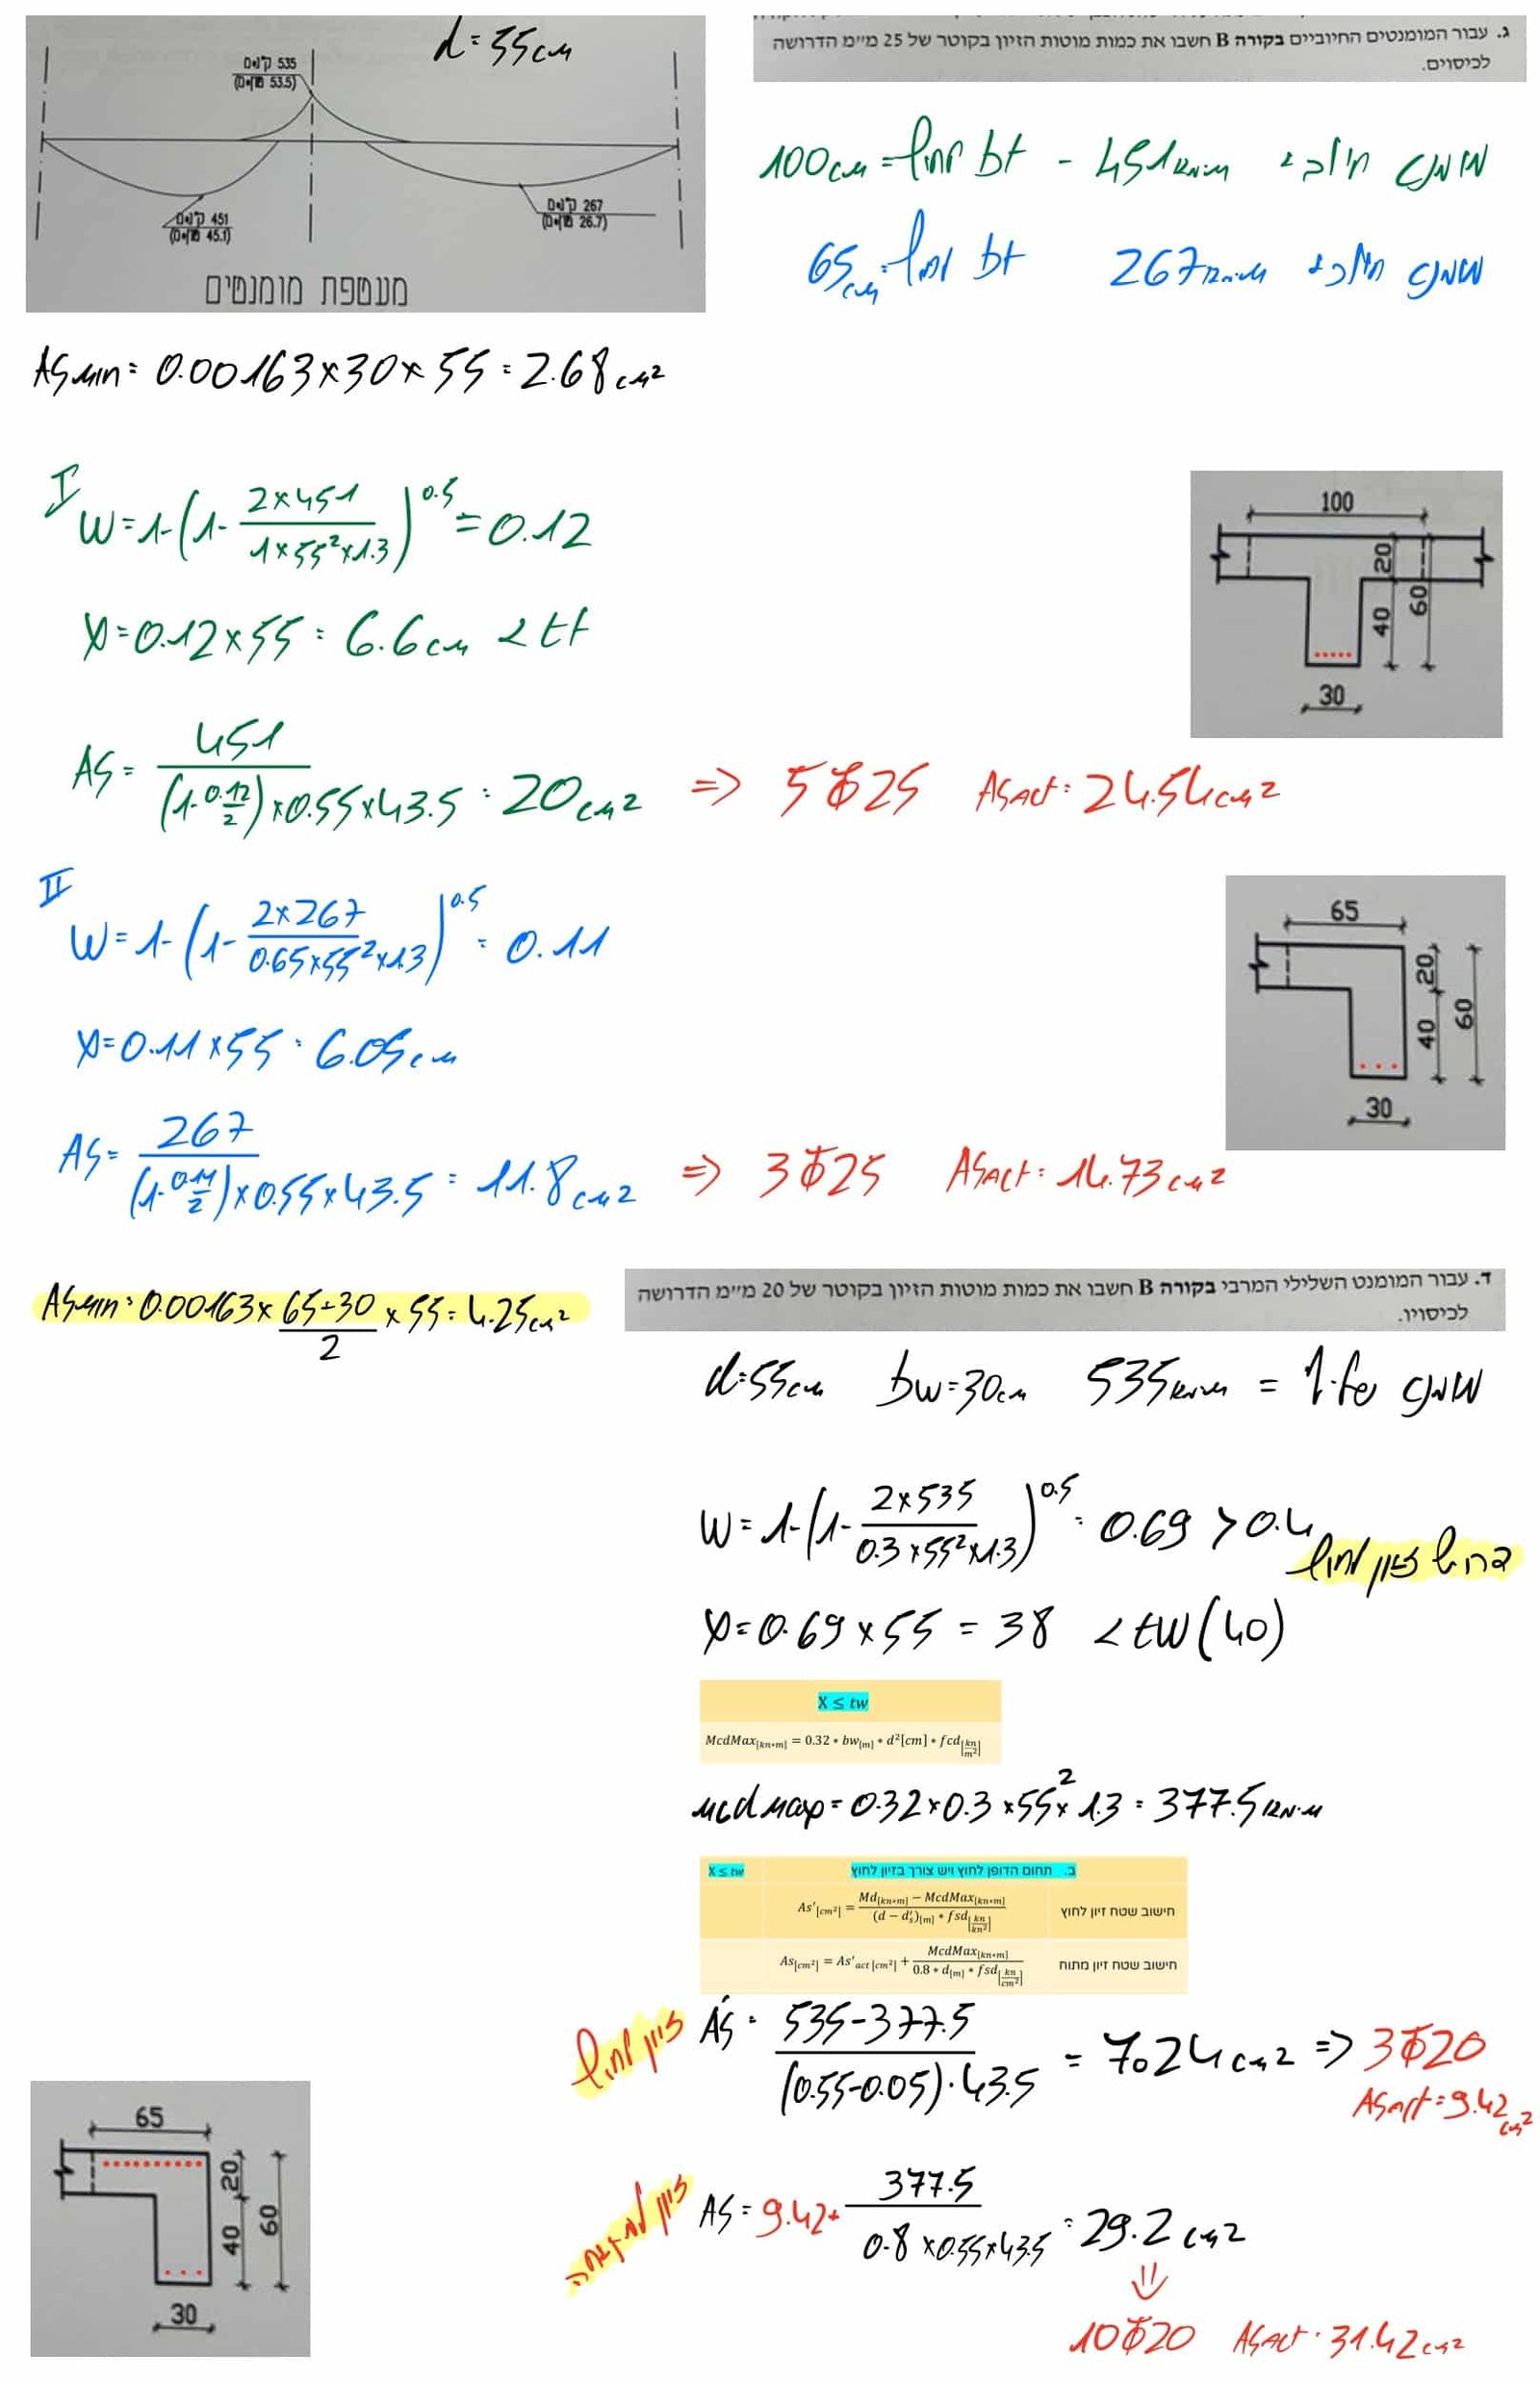 d=55cm
535 קנ"מ
(53.5 טון•מ)
451 קנ"מ
(45.1 טון•מ)
267 קנ"מ
(26.7 טון•מ)
מעטפת מומנטים
ג. עבור המומנטים החיוביים בקורה B חשבו את כמות מוטות הזיון בקוטר של 25 מ״מ הדרושה
לכיסוים.
מומנט חיובי 451kN·m - bf לחוץ = 100cm
מומנט חיובי 267kN·m bf לחוץ = 65cm
ASmin = 0.00163×30×55 = 2.68cm²
I
W=1-(1-\frac{2×451}{1×55²×1.3})^0.5 = 0.12
X=0.12×55 = 6.6cm < tf
100
20
40
60
30
AS = \frac{451}{(1-\frac{0.12}{2})×0.55×43.5} = 20cm² => 5Φ25 ASact = 24.54cm²
II
W=1-(1-\frac{2×267}{0.65×55²×1.3})^0.5 = 0.11
X=0.11×55 = 6.05cm
65
20
40
60
30
AS = \frac{267}{(1-\frac{0.11}{2})×0.55×43.5} = 11.8cm² => 3Φ25 ASact = 14.73cm²
ASmin = 0.00163×\frac{65+30}{2}×55 = 4.25cm²
ד. עבור המומנט השלילי המרבי בקורה B חשבו את כמות מוטות הזיון בקוטר של 20 מ״מ הדרושה
לכיסויו.
d=55cm bw=30cm 535kN·m = מומנט שלילי
W=1-(1-\frac{2×535}{0.3×55²×1.3})^0.5 = 0.69 > 0.4
דרוש זיון לחוץ
X=0.69×55 = 38 < tw(40)
X ≤ tw
McdMax[kn*m] = 0.32 * bw[m] * d²[cm] * fcd[\frac{kn}{m²}]
mcdmax = 0.32×0.3×55²×1.3 = 377.5kN·m
ב. תחום הדופן לחוץ ויש צורך בזיון לחוץ X ≤ tw
חישוב שטח זיון לחוץ As'[cm²] = \frac{Md[kn*m] − McdMax[kn*m]}{(d − d's)[m] * fsd[\frac{kn}{kn²}]}
חישוב שטח זיון מתוח As[cm²] = As'act[cm²] + \frac{McdMax[kn*m]}{0.8 * d[m] * fsd[\frac{kn}{cm²}]}
זיון לחוץ A's = \frac{535-377.5}{(0.55-0.05)·43.5} = 7.24cm² => 3Φ20
ASact = 9.42cm²
65
20
40
60
30
זיון למתיחה AS = 9.42+\frac{377.5}{0.8×0.55×43.5} = 29.2cm²
10Φ20 ASact = 31.42cm²